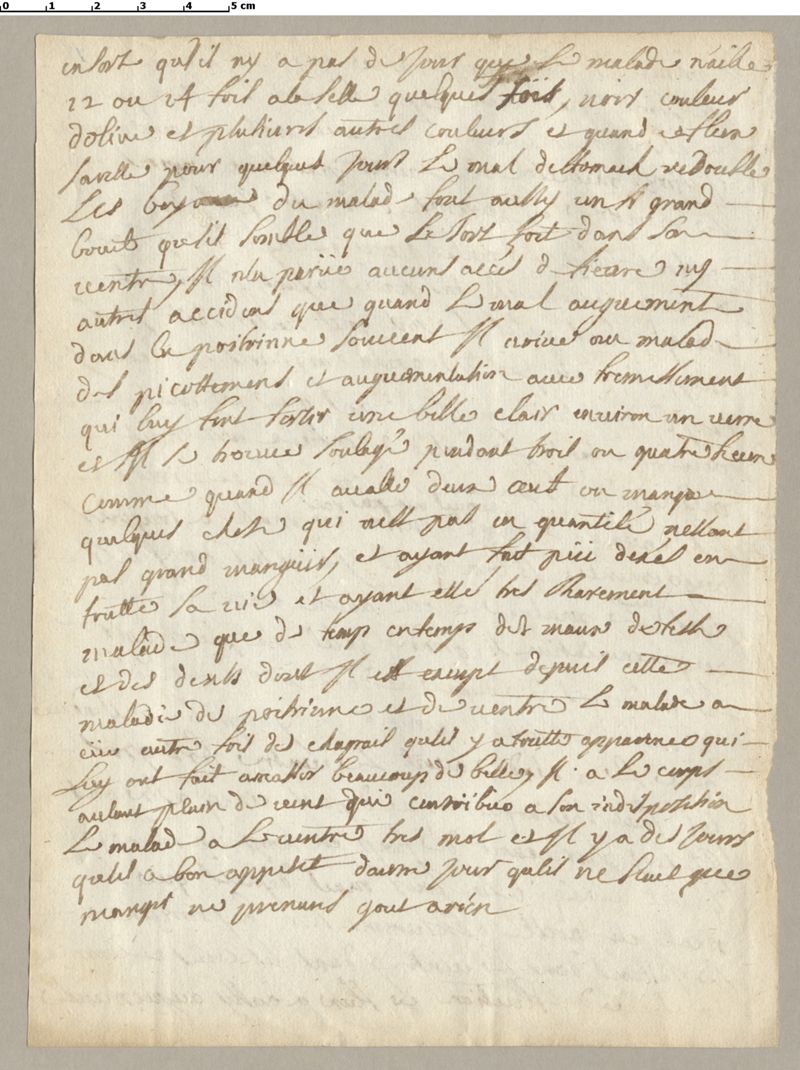 0 1 2 3 4 5 cm
en sort qu'il ny a pas de jour que le malade n'aille
12 ou 14 fois a la selle quelques fois, noir couleur
dolive et plusieurs autres couleurs et quand
pour quelques jours Le mal destomach redouble
Les boyaux du malade sont aussy un si grand
bruit qu'il semble que le sort soit dans son
ventre, Il n'a pas eüe aucuns accés de fievre ny
autres accidens que quand Le mal augmente
dans la poitrinne souvent Il arive au malade
des picottement et augmentation avec fremissement
qui luy font sortir une bille clair environ un verre
et Il se trouve soulagé pendant trois ou quatre heure
comme quand Il avalle deux oeuf ou mange
quelques chose qui n'est pas en quantité nestant
pas grand mangeür, et ayant fait
toutte sa vie et ayant esté tres Rarement
malade que de temp en temps des maux de teste
et des dents dont Il est exempt depuis cette
maladie de poitrinne et de ventre Le malade a
eüe autre fois des chagrain qu'il y a toutte apparence qui
Luy ont fait amasser beaucoup de bille, Il a Le corps
autant plain de vent qui contribue a son indisposition
Le malade a Le ventre tres mol et Il y a des jours
qu'il a bon appetit dautre jour qu'il ne
manger ne prenans gout a rien